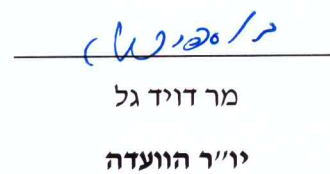 מר דויד גל
יו״ר הוועדה